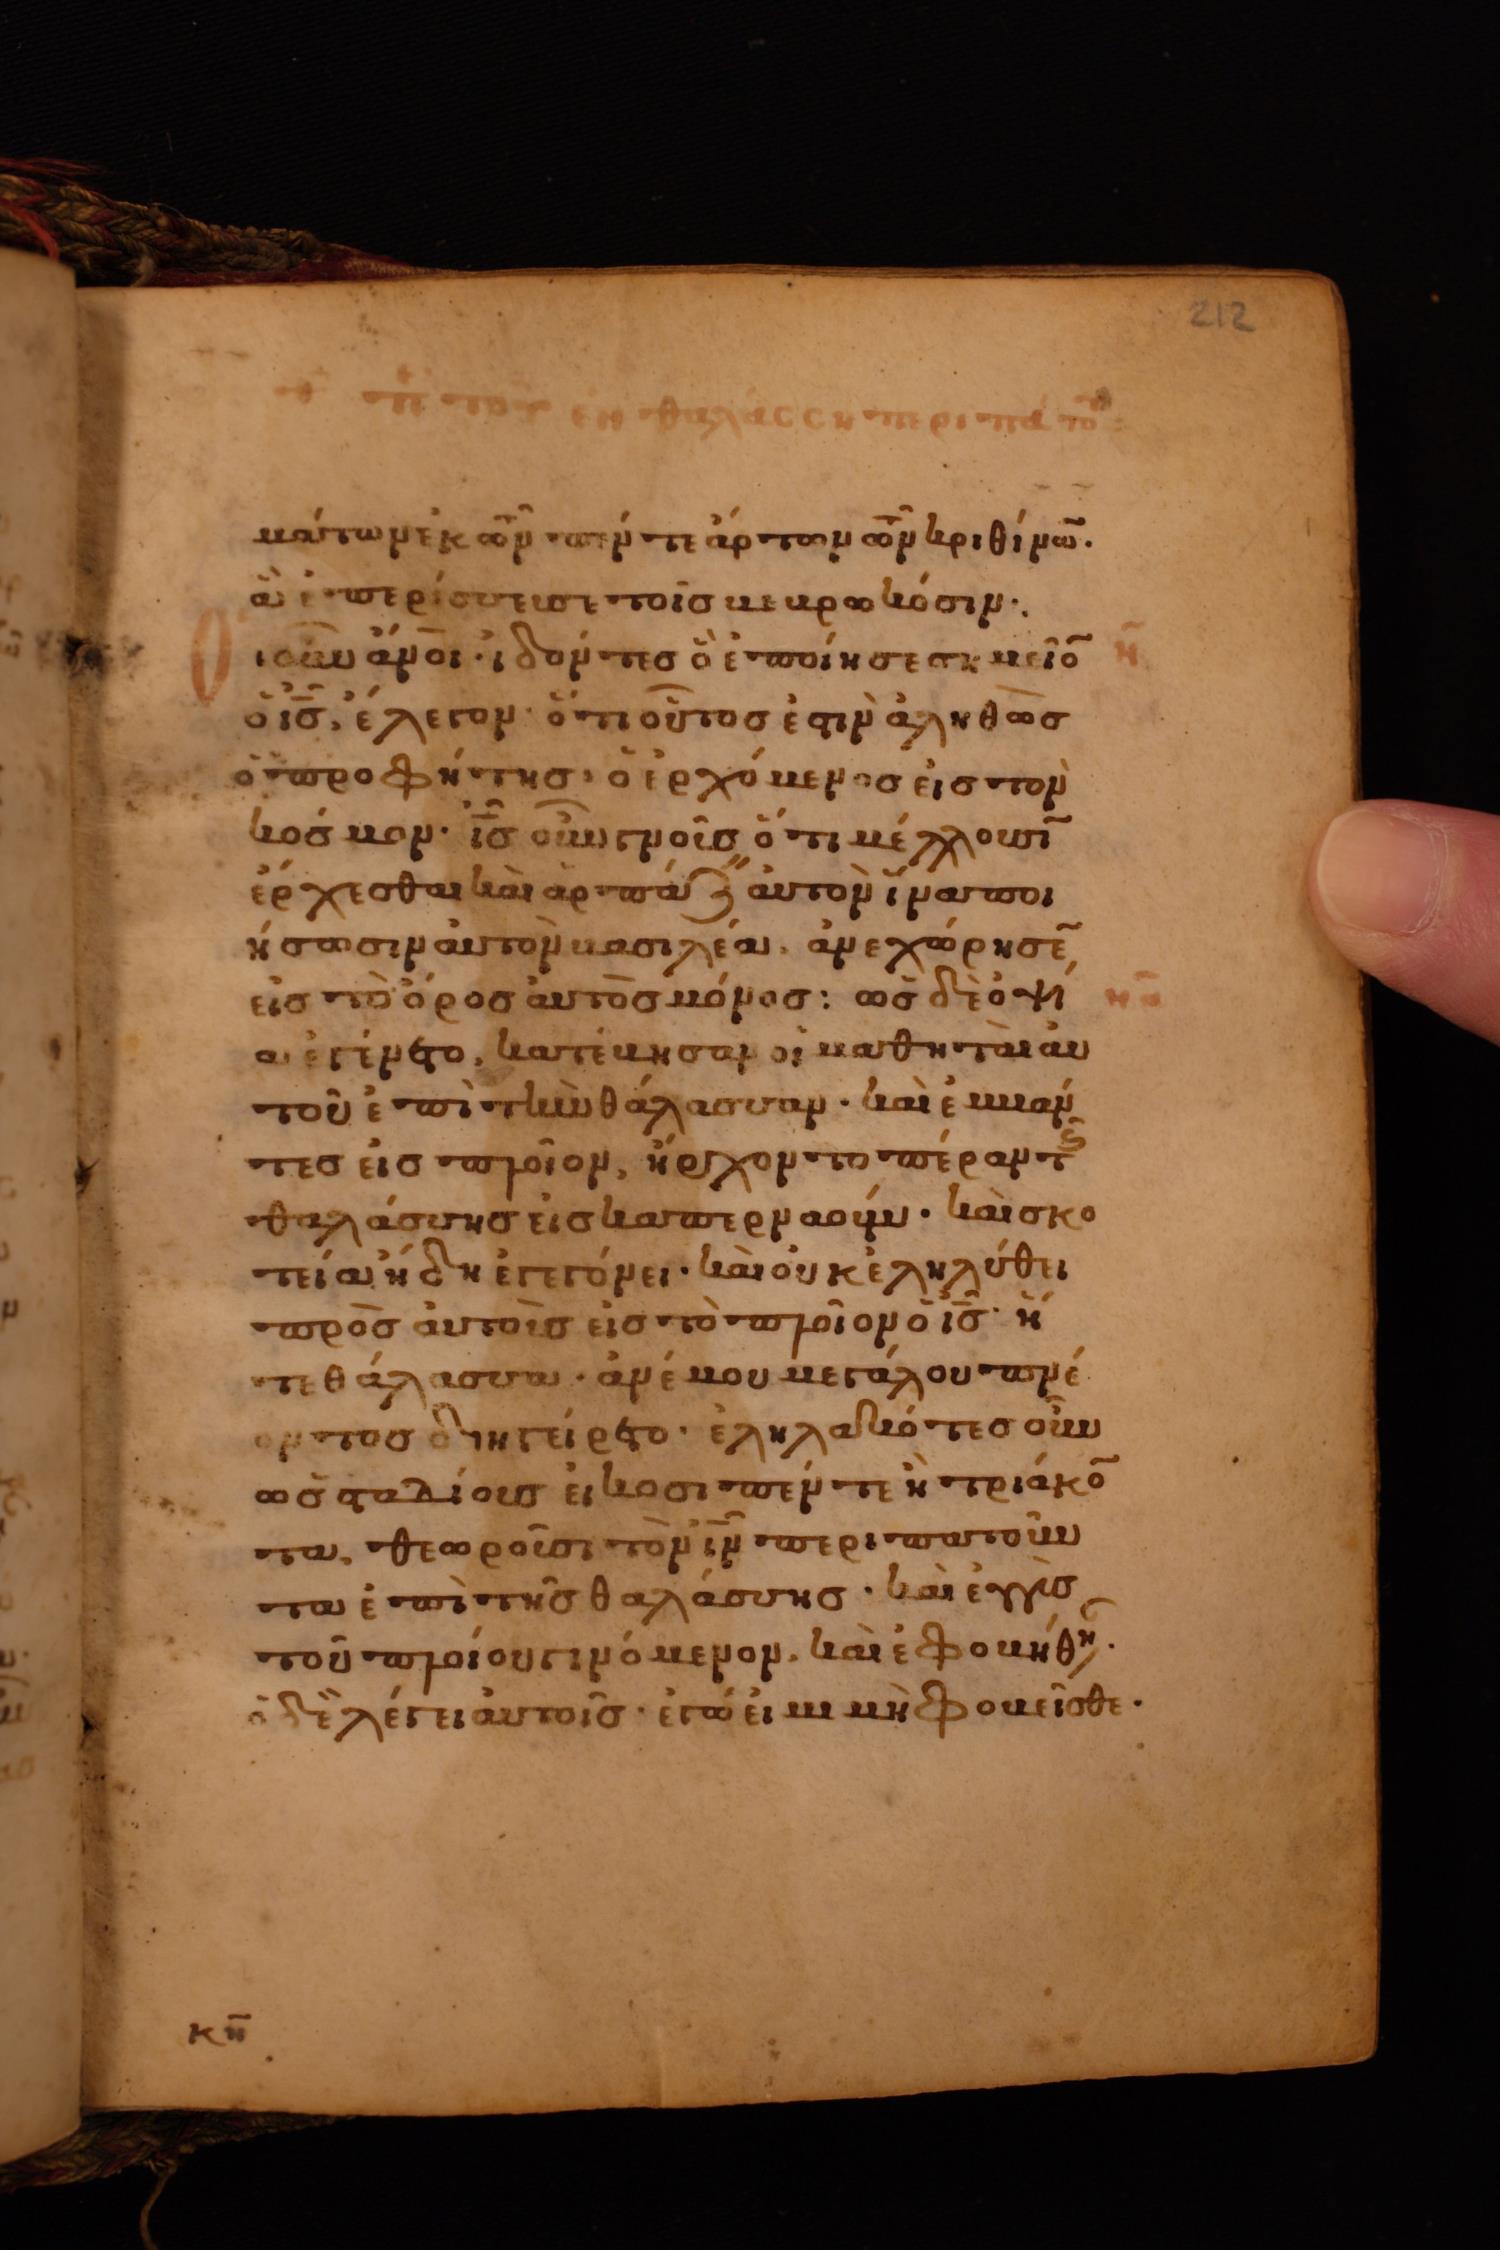 212
ἐν θαλάσση περιπάτου
μάτων ἐκ τῶν πέντε ἄρτων τῶν κριθίνων.
ἃ ἐπερίσσευσε τοῖς βεβρωκόσιν·
Οἱ οὖν ἄνοι· ἰδόντες ὃ ἐποίησε σημεῖον
ὁ ις, ἔλεγον· ὅτι οὗτος ἐστὶν ἀληθῶς
ὁ προφήτης, ὁ ἐρχόμενος εἰς τὸν
κόσμον· ις οὖν γνοῦς ὅτι μέλλουσιν
ἔρχεσθαι καὶ ἁρπάζειν αὐτὸν ἵνα ποι
ήσωσιν αὐτὸν βασιλέα, ἀνεχώρησεν
εἰς τὸ ὄρος αὐτὸς μόνος: ὡς δὲ ὀψί
α ἐγένετο, κατέβησαν οἱ μαθηταὶ αὐ
τοῦ ἐπὶ τὴν θάλασσαν· καὶ ἐμβάν
τες εἰς πλοῖον, ἤρχοντο πέραν τῆς
θαλάσσης εἰς καπερναούμ· καὶ σκο
τεία ἤδη ἐγεγόνει· καὶ οὐκ ἐληλύθει
πρὸς αὐτοὺς εἰς τὸ πλοῖον ὁ ις· ἥ
τε θάλασσα· ἀνέμου μεγάλου πνέ
οντος διηγείρετο· ἐληλακότες οὖν
ὡς σταδίους εἰκοσιπέντε ἢ τριάκον
τα, θεωροῦσι τὸν ιν περιπατοῦν
τα ἐπὶ τῆς θαλάσσης· καὶ ἐγγὺς
τοῦ πλοίου γινόμενον, καὶ ἐφοβήθησαν·
ὁ δὲ λέγει αὐτοῖς· ἐγώ εἰμι μὴ φοβεῖσθε·
κη